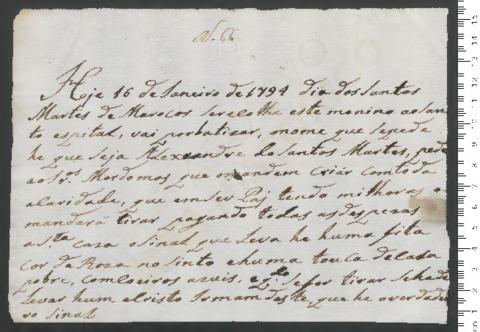 N. 66
Hoje 16 de Janeiro de 1794 dia dos Santos
Martes de Marocos se recolhe este menino ao San
to espital, vai por batizar, o nome que se pede
he que seja Alexandre do Santos Martes, pede
ao Sr.os Mordomos que o mandem criar com toda
a laridade, que em seu Paj tendo milhoras o
mandará tirar pagando todas as despezas
a S.ta caza o sinal que leva he huma fita
cor de Roza no sinto e huma touca de lasa
pobre, com loeiros azuis, e q.do se for tirar se hade
levar hum escristo Irmam deste, que he o verdadei
ro sinal